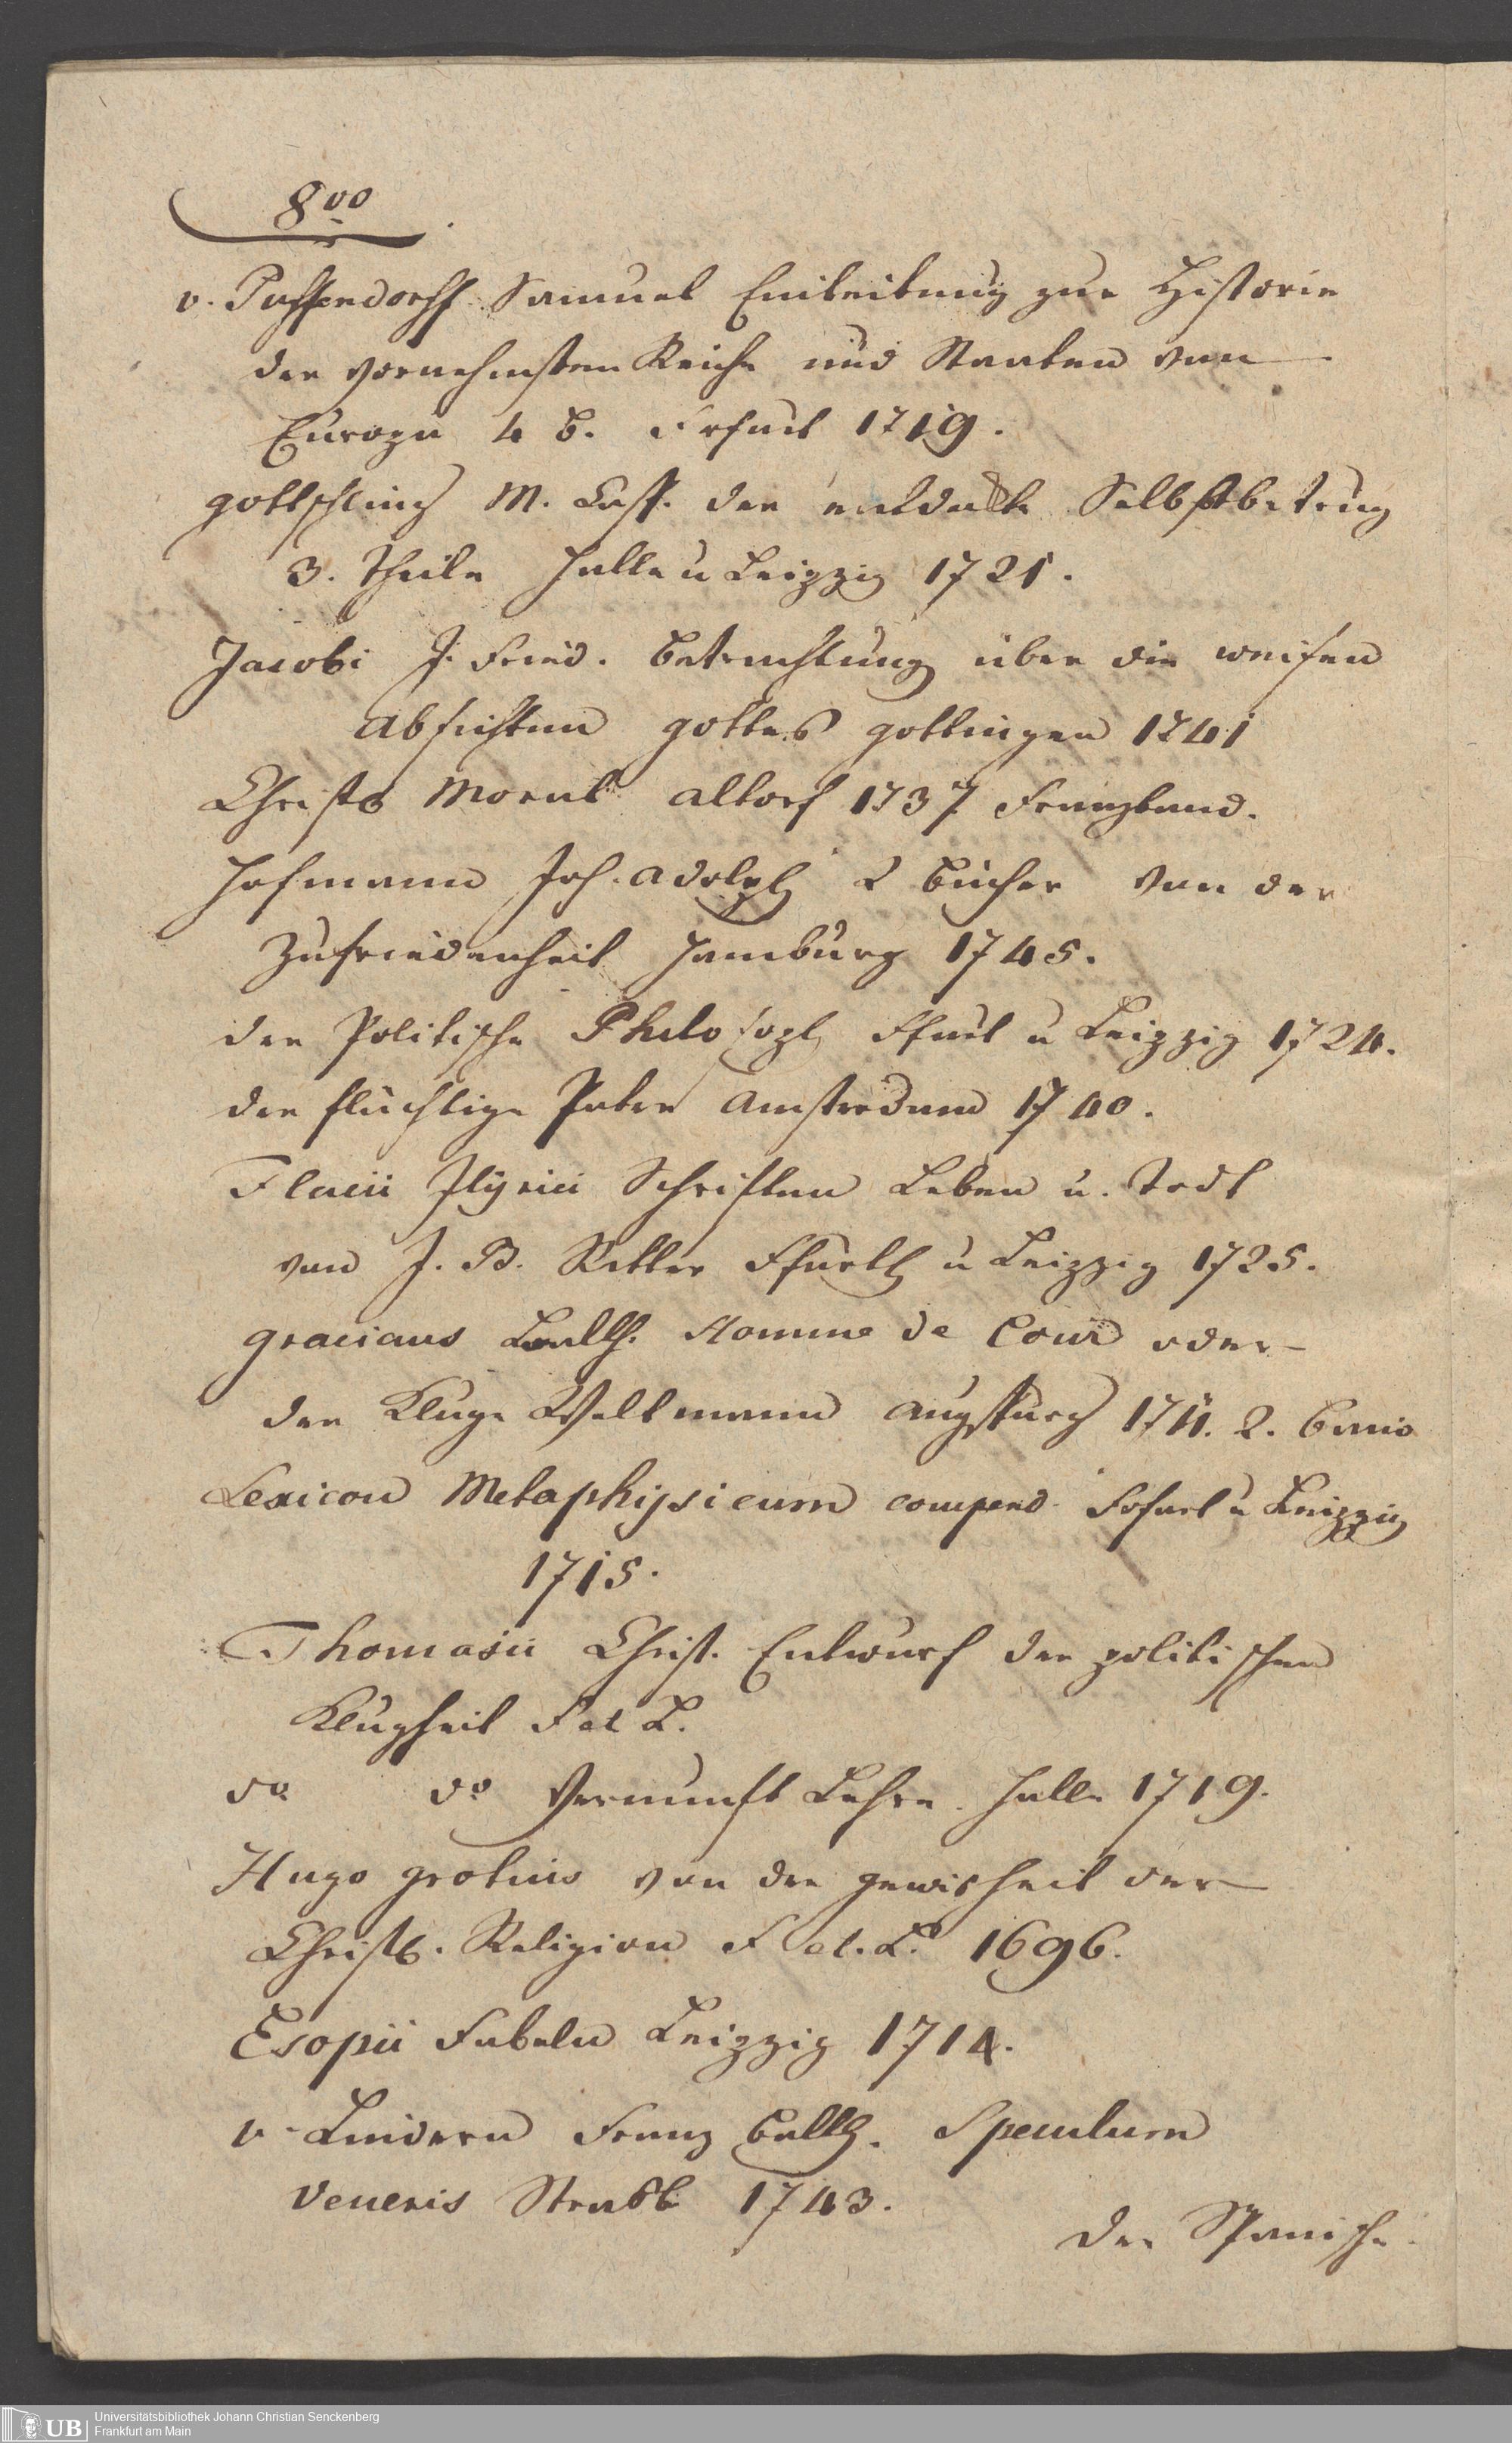 8vo
v. Puffendorff Samuel Einleitung zur Historie
der vornehmsten Reiche und Staaten von
Europa 4 b. Frfurt 1719.
gottschling M. Casp. der entdeckte Selbstbetrug
3. Theile Halle u Leipzig 1721.
Jacobi J. Fried. Betrachtung über die weisen
Absichten gottes gottingen 1741
Christs Moral Altorf 1737 Franzband.
Hofmann Joh. Adolph 2 Bücher von der
Zufriedenheit Hamburg 1745.
der Politische Philosoph Ffurt u Leipzig 1724.
der flüchtige Pater Amsterdam 1740.
Flacii Jlÿrici Schriften Leben u. Todt
von J. B. Ritter Ffurth u Leipzig 1725.
gracians Balth. Homme de Cour oder
der Kluge Weltmann Augspurg 1711. 2. Band
Lexicon Metaphÿsicum compend. Frfurt u Leipzig
1715.
Thomasii Christ. Entwurf der politischen
Klugheit F et L.
do do Vernunft Lehre. Halle 1719.
Hugo grotius von der gewisheit der
Christl. Religion F et. L. 1696.
Esopii Fabeln Leipzig 1714.
v. Lindern Franz Balth. Speculum
Veneris Strasb 1743.
Der Spanische
Universitätsbibliothek Johann Christian Senckenberg
UB Frankfurt am Main